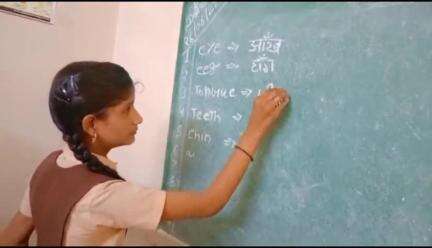 eye ⇒ आँख
leg ⇒ टाँग
Tongue ⇒
Teeth ⇒
Chin ⇒